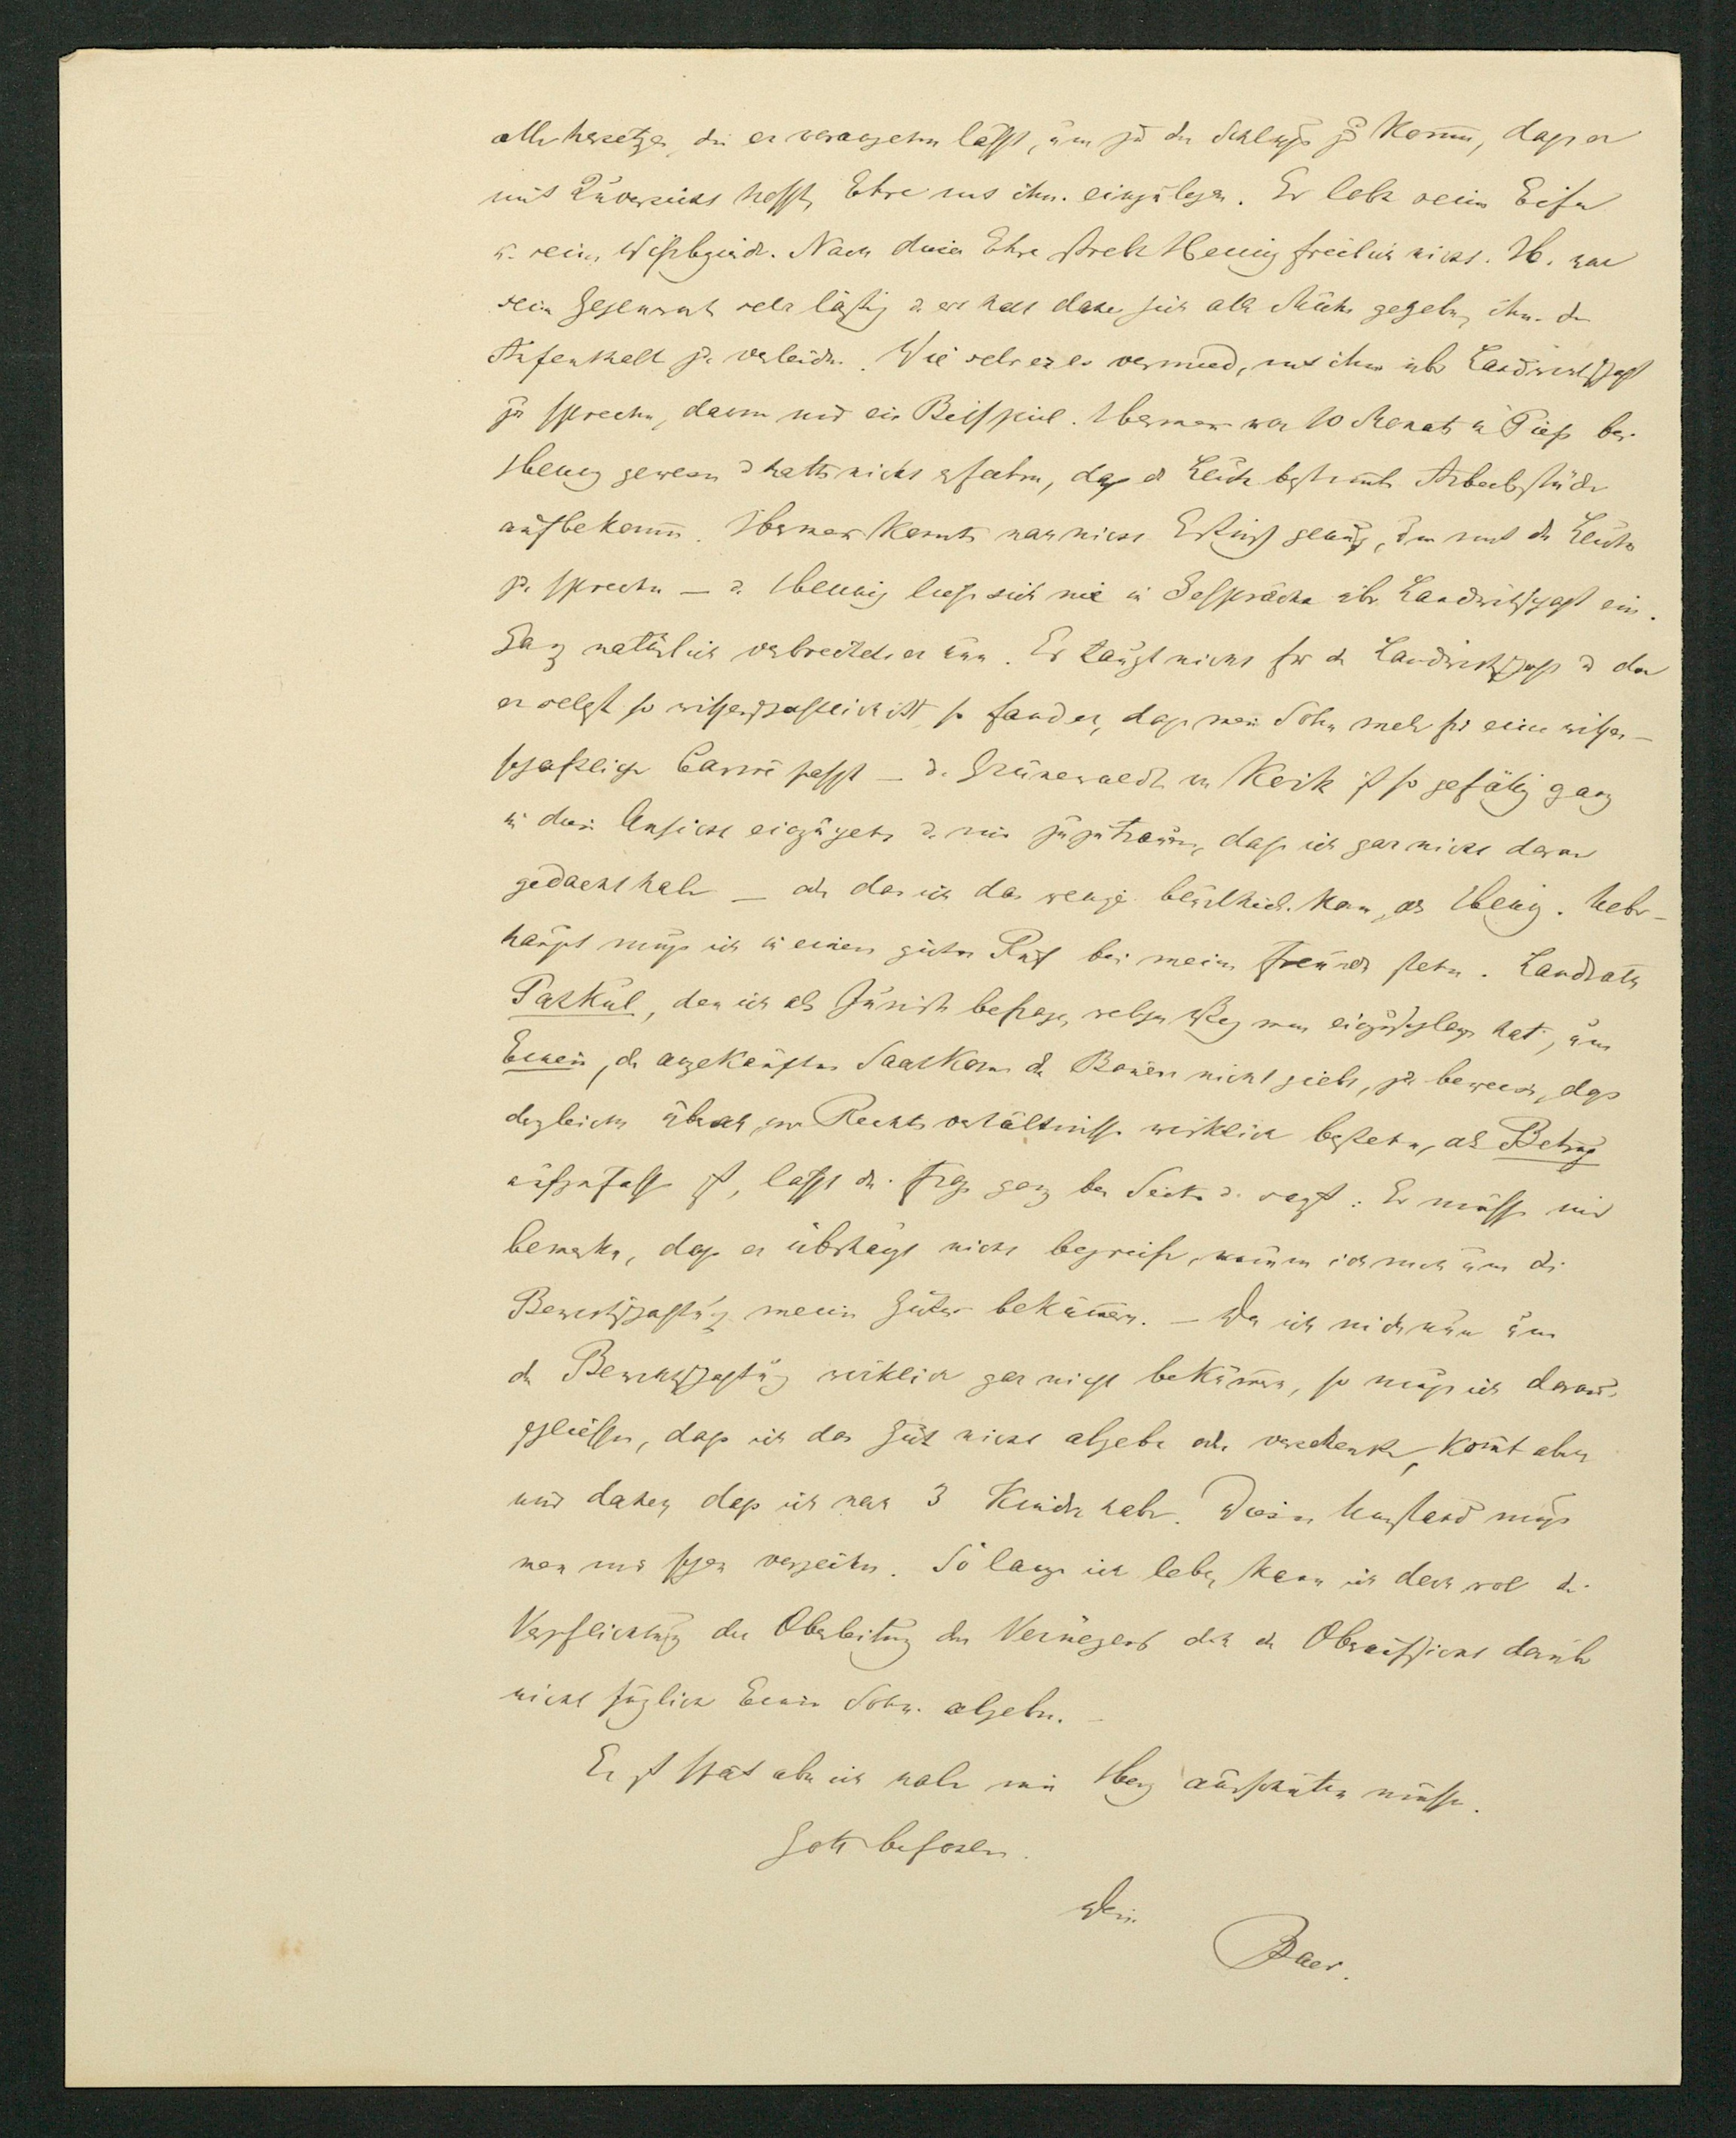 die er vorangehen lässt, um zu dem Schlusse zu kommen, dass er
mit Zuversicht hofft, Ehre mit ihm einzulegen. Er lobt seinen Eifer
u. seine Wissbegierde. Nach dieser Ehre strebt Hennig freilich nicht. H. war
seine Gegenwart sehr lästig u. er hat daher sich alle Mühe gegeben, ihm den
Aufenthalt zu verleiden. Wie sehr er es vermied, mit ihm über Landwirthschaft
zu sprechen, davon nur ein Beispiel. Herman war 10 Monate in Piep bei
Hennig gewesen u. hatte nicht erfahren, dass die Leute bestimmte Arbeitsstücke
aufbekommen. Herman konnte noch nicht Estnisch genug, um mit den Leuten
zu sprechen — u. Hennig liess sich nie in Gespräche über Landwirthschaft ein.
Ganz natürlich verbreitete er nun. Er taugt nicht für die Landwirthschaft u. da
er selbst so wissenschaftlich ist, so fand er, dass mein Sohn mehr für eine wissen-
schaftliche Carriere passt — u. Grünewaldt in Koik ist so gefällig ganz
in diese Ansicht einzugehen u. mir zuzutrauen, dass ich gar nicht daran
gedacht habe — oder dass ich das weniger beurtheilen kann, als Hennig. Ueber-
haupt muss ich in einem guten Ruf bei meinen Freunden stehn. Landrath
Patkul, den ich als Juristen befrage, welchen Weg man einzuschlagen hat, um
Einem, der angekauftes Saatkorn den Bauern nicht giebt, zu beweisen, dass
dergleichen überall, wo Rechtsverhältnisse wirklich bestehn, als Betrug
aufzufassen ist, lässt die Frage ganz bei Seite u. sagt: Er müsse mir
bemerken, dass er überhaupt nicht begreife, warum ich mich um die
Bewirthschaftung meiner Güter bekümmere. — Da ich mich nun um
die Bewirthschaftung wirklich gar nicht bekümmere, so muss ich daraus
schliessen, dass ich das Gut nicht abgebe oder verschenke, kommt aber
nur daher, dass ich noch 3 Kinder habe. Diesen Umstand muss
man mir schon verzeihen. So lange ich lebe, kann ich doch wol die
Verpflichtung der Oberleitung des Vermögens oder die Oberaufsicht darüber
nicht füglich Einem Sohne abgeben. —
Es ist spät aber ich habe mein Herz ausschütten müssen.
Gott befohlen.
Dein
Baer.